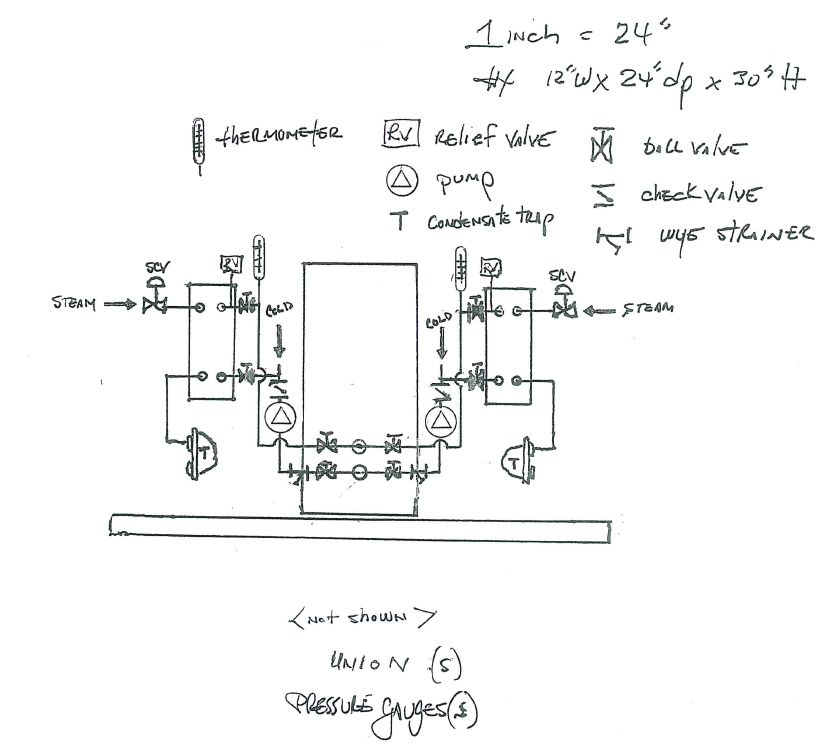 1 inch = 24"
HX 12"W x 24"dp x 30"H
THERMOMETER
RV RELIEF VALVE
BALL VALVE
PUMP
CHECK VALVE
T CONDENSATE TRAP
WYE STRAINER
SCV
RV
RV
SCV
STEAM
COLD
COLD
STEAM
T
T
<NOT SHOWN>
UNION (S)
PRESSURE GAUGES (S)